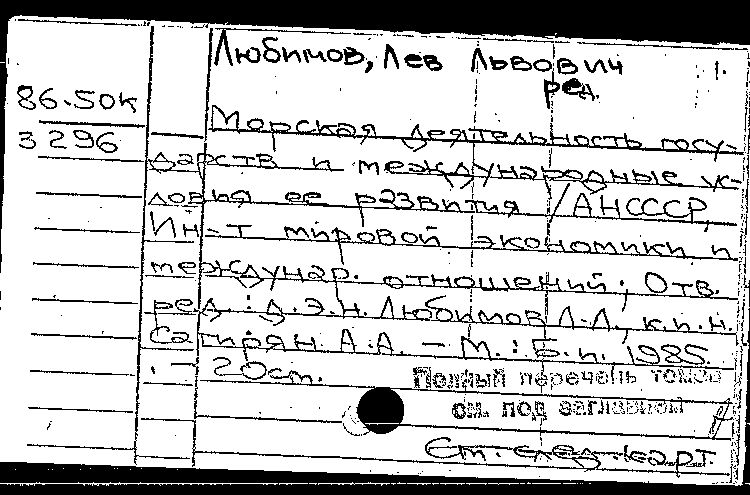 Любимов, Лев Львович 1.
ред.
86.50к
3296
Морская деятельность госу-
дарств и международные ус-
ловия ее развития / АН СССР,
Ин-т мировой экономики и
междунар. отношений; Отв.
ред.: д.э.н. Любимов Л.Л., к.и.н.
Сагирян А.А. – М.: Б.и., 1985.
. – 20 см.
Полный перечень томов
см. под заглавной
См. след. карт.